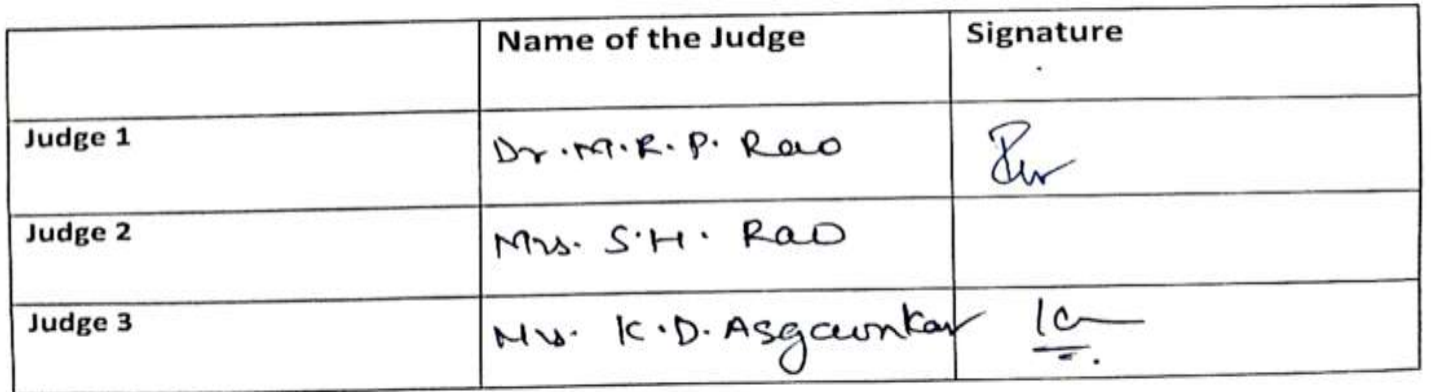 Name of the Judge Signature
Judge 1 Dr. M. R. P. Rao
Judge 2 Mrs. S. H. Rao
Judge 3 K. D. Asgaonkar